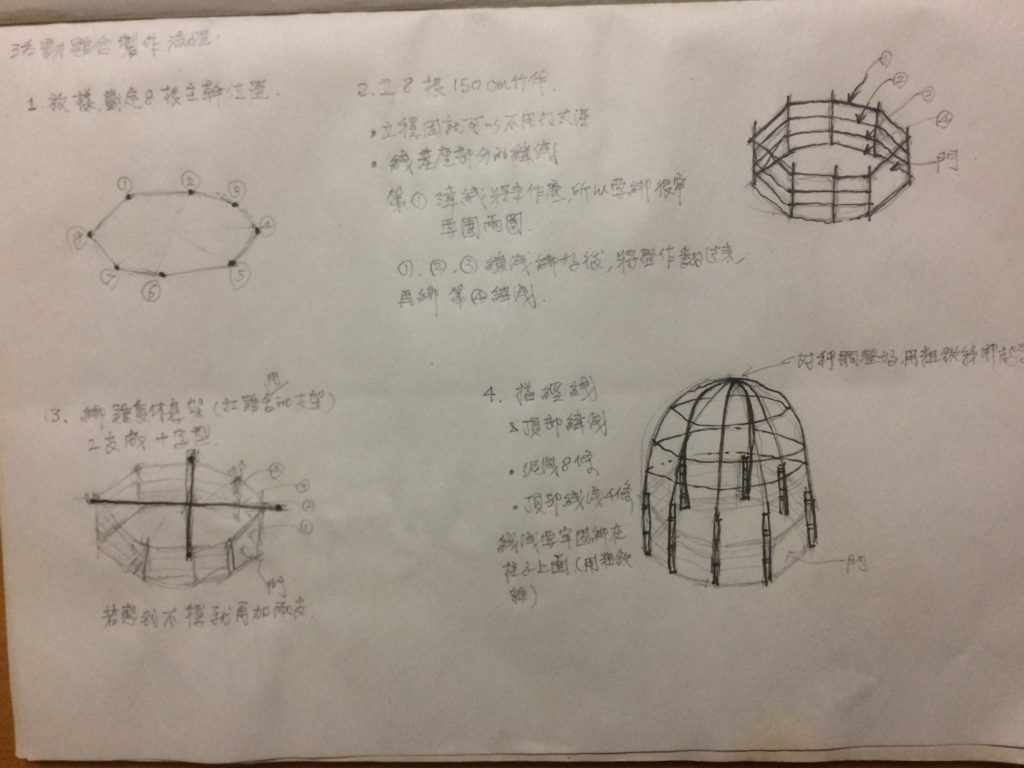 活動雞舍製作流程:
1. 放樣,劃定8根主幹位置.
①
②
③
④
⑤
⑥
⑦
⑧
2. 立8根150cm竹竿.
• 立穩固就可以不用打太深
• 綁基座部分的緯線
第①緯線將來作底,所以要綁很牢
牢固兩圈.
①.②.③緯線綁好後,將整作翻過來,
再綁第④緯線.
①
②
③
④
門
(3. 綁雞隻休息架(扛雞舍的支架)
用
2支成十字型
④
③
②
①
門
若應到不穩就再加兩支.
4. 搭經線
&頂部緯線
• 經線8條
• 頂部緯線4條
線要牢固綁在
柱子上面(用粗
綁)
調整好用粗鐵絲綁
門